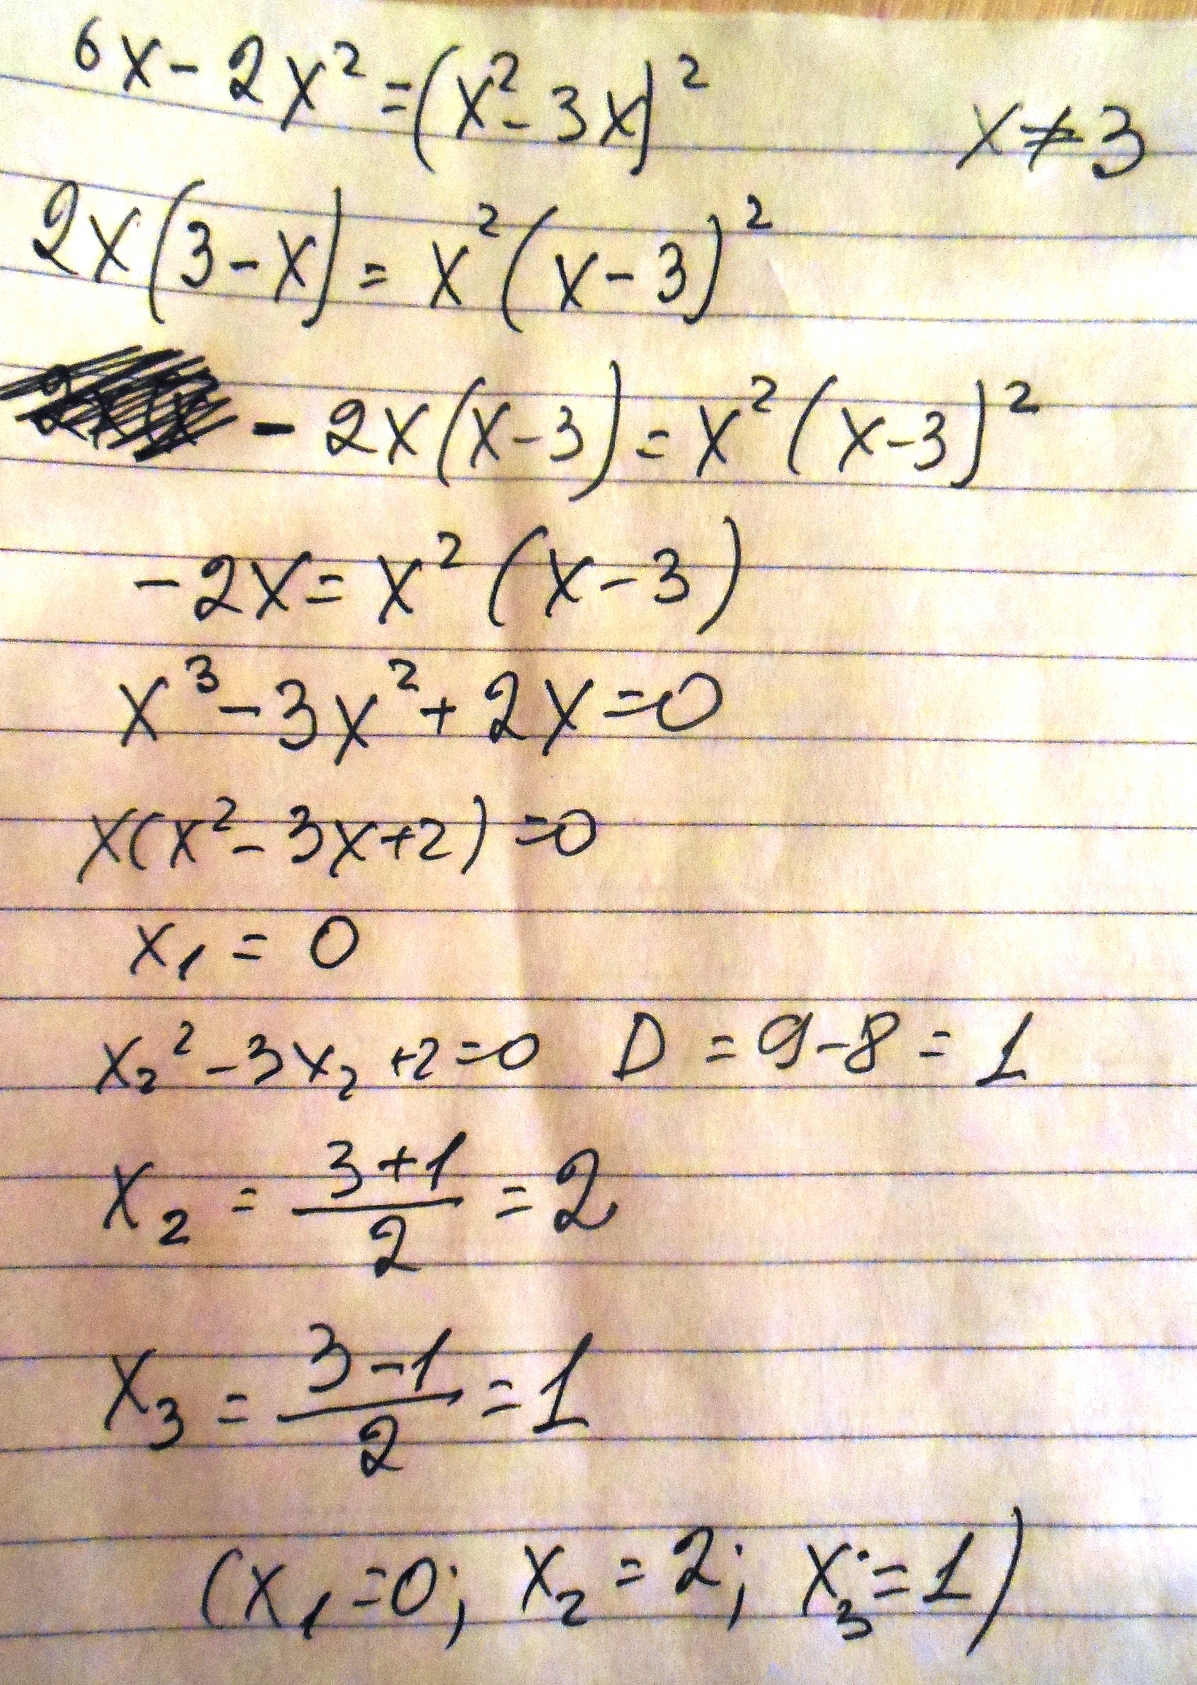 6x - 2x² = (x² - 3x)² x ≠ 3
2x(3 - x) = x²(x - 3)²
- 2x(x - 3) = x²(x - 3)²
- 2x = x²(x - 3)
x³ - 3x² + 2x = 0
x(x² - 3x + 2) = 0
x₁ = 0
x₂² - 3x₂ + 2 = 0 D = 9 - 8 = 1
x₂ = (3 + 1)/2 = 2
x₃ = (3 - 1)/2 = 1
(x₁ = 0; x₂ = 2; x₃ = 1)